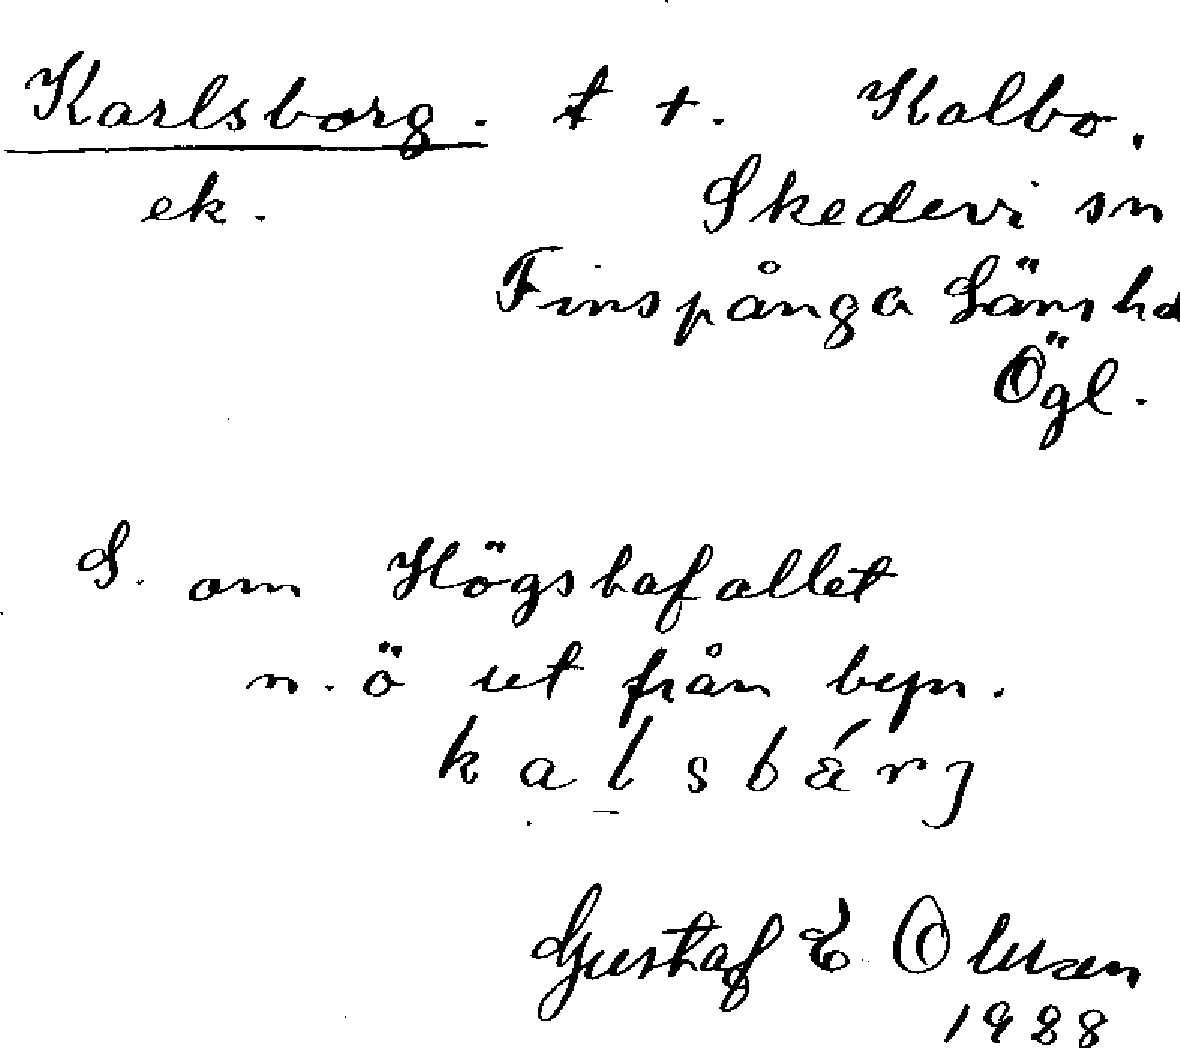 Karlsborg. t t. Kalbo.
ek. Skedevi sn
Finspånga Länshd
Ögl.
S. om Högstafallet
n. ö ut från byn.
kalsbárj
Gustaf E Olsson
1928